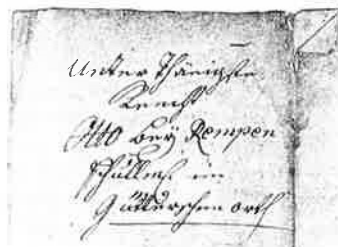 Unter Thänigste
Knecht
Otto beÿ Rempen
Schullmst im
Gütterschen orth